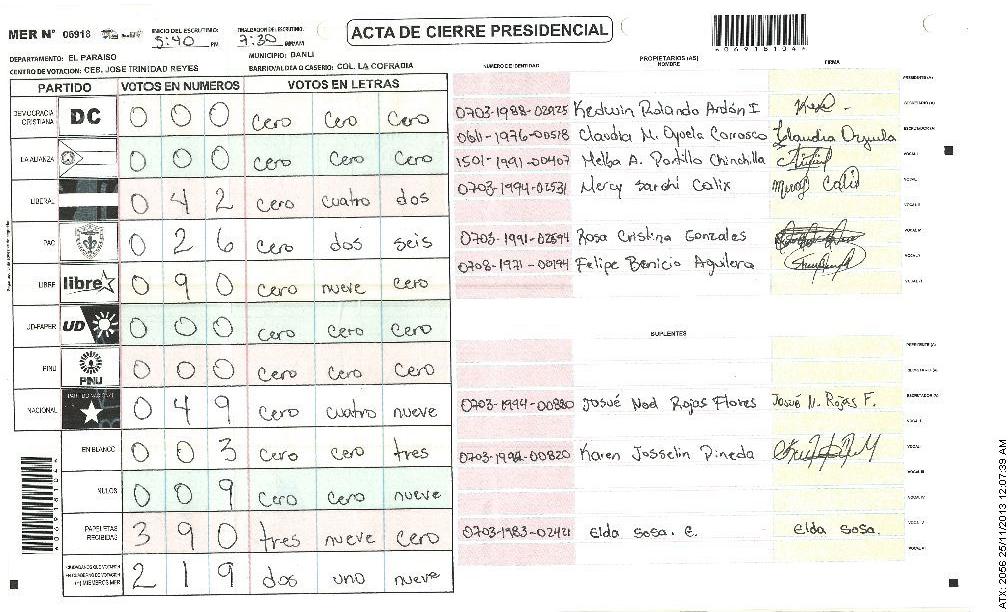 MER N° 06918
INICIO DEL ESCRUTINIO: 5:40 PM
FINALIZACION DEL ESCRUTINIO: 7:30 AM/PM
ACTA DE CIERRE PRESIDENCIAL
*069181044*
DEPARTAMENTO: EL PARAISO
MUNICIPIO: DANLI
CENTRO DE VOTACION: CEB. JOSE TRINIDAD REYES
BARRIO/ALDEA O CASERIO: COL. LA COFRADIA
PARTIDO VOTOS EN NUMEROS VOTOS EN LETRAS
DEMOCRACIA CRISTIANA DC 0 0 0 cero cero cero
LA ALIANZA 0 0 0 cero cero cero
LIBERAL 0 4 2 cero cuatro dos
PAC 0 2 6 cero dos seis
LIBRE libre 0 9 0 cero nueve cero
UD-FAPER UD 0 0 0 cero cero cero
PINU PINU 0 0 0 cero cero cero
NACIONAL PARTIDO NACIONAL 0 4 9 cero cuatro nueve
EN BLANCO 0 0 3 cero cero tres
NULOS 0 0 9 cero cero nueve
PAPELETAS RECIBIDAS 3 9 0 tres nueve cero
2 1 9 dos uno nueve
NUMERO DE IDENTIDAD PROPIETARIOS (AS) NOMBRE FIRMA
PRESIDENTE (A)
0703-1988-02925 Kedwin Rolando Ardón I SECRETARIO (A)
0611-1976-00518 Claudia M. Oyuela Carrasco Claudia Oyuela ESCRUTADOR (A)
1501-1991-00407 Melba A. Portillo Chinchilla VOCAL I
0703-1994-02531 Mercy Sarahi Calix Mercy Calix VOCAL II
VOCAL III
0703-1991-02894 Rosa Cristina Gonzales VOCAL IV
0708-1971-00194 Felipe Benicio Aguilera VOCAL V
VOCAL VI
SUPLENTES
PRESIDENTE (A)
SECRETARIO (A)
0703-1994-00880 Josué Noel Rojas Flores Josué N. Rojas F. ESCRUTADOR (A)
VOCAL I
0703-1992-00820 Karen Josselin Pineda VOCAL II
VOCAL III
VOCAL IV
0703-1983-02421 Elda Sosa. E. Elda Sosa. VOCAL V
VOCAL VI
ATX: 2056 25/11/2013 12:07:39 AM